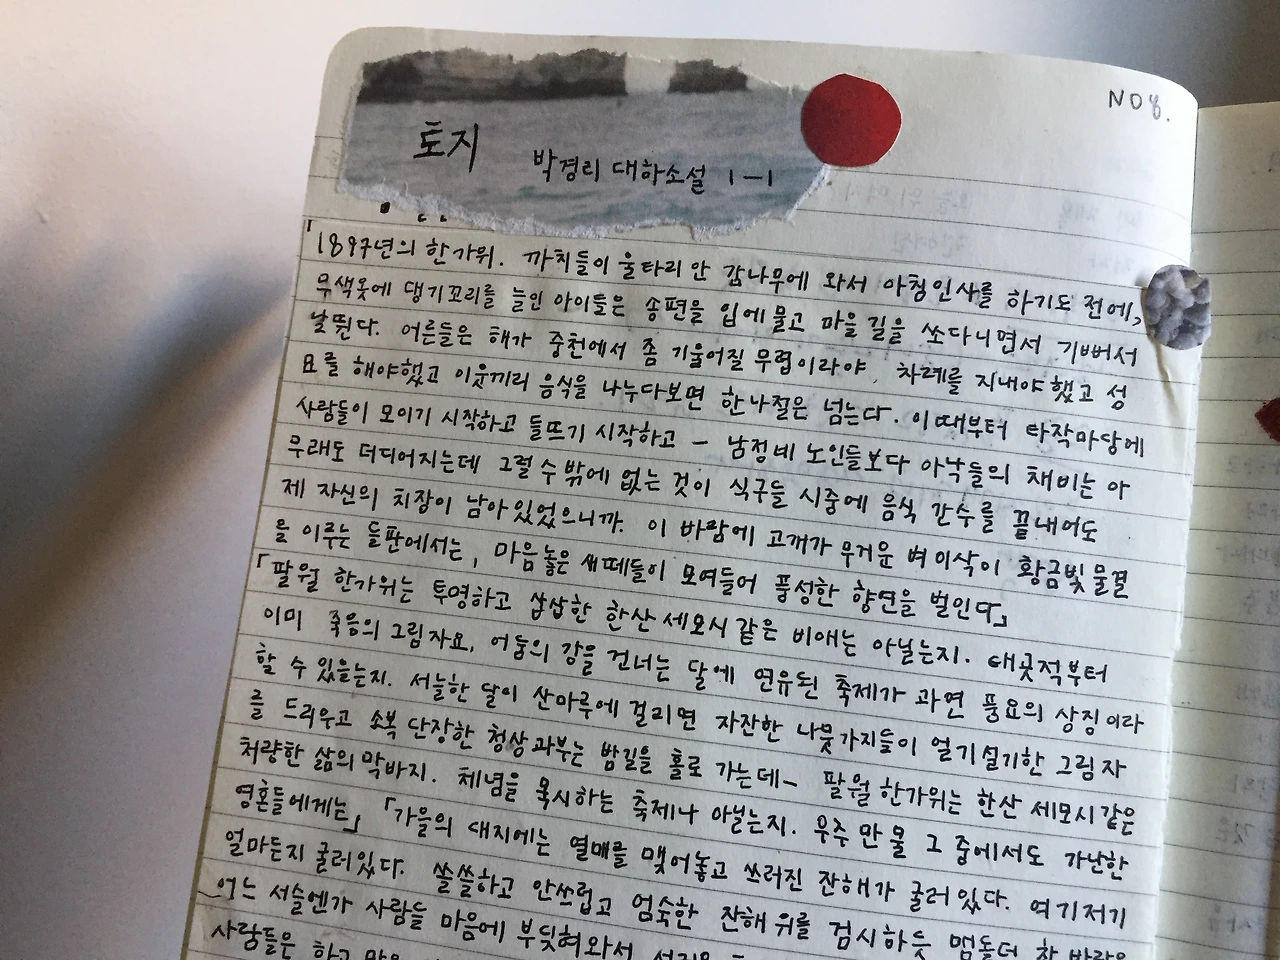 NO 8.
토지 박경리 대하소설 1-1
「1897년의 한가위. 까치들이 울타리 안 감나무에 와서 아침인사를 하기도 전에,
무색옷에 댕기꼬리를 늘인 아이들은 송편을 입에 물고 마을길을 쏘다니면서 기뻐서
날뛴다. 어른들은 해가 중천에서 좀 기울어질 무렵이라야, 차례를 지내야 했고 성
묘를 해야했고 이웃끼리 음식을 나누다보면 한나절은 넘는다. 이때부터 타작마당에
사람들이 모이기 시작하고 들뜨기 시작하고 - 남정네 노인들보다 아낙들의 채비는 아
무래도 더디어지는데 그럴 수 밖에 없는 것이 식구들 시중에 음식 간수를 끝내어도
제 자신의 치장이 남아있었으니까. 이 바람에 고개가 무거운 벼이삭이 황금빛 물결
을 이루는 들판에서는, 마음놓은 새떼들이 모여들어 풍성한 향연을 벌인다」
「팔월 한가위는 투명하고 삽삽한 한산 세모시 같은 비애는 아닐는지. 태곳적부터
이미 죽음의 그림자요, 어둠의 강을 건너는 달에 연유된 축제가 과연 풍요의 상징이라
할 수 있을는지. 서늘한 달이 산마루에 걸리면 자잔한 나뭇가지들이 얼기설기한 그림자
를 드리우고 소복 단장한 청상과부는 밤길을 홀로 가는데- 팔월 한가위는 한산 세모시같은
처량한 삶의 막바지. 체념을 묵시하는 축제나 아닐는지. 우주 만물 그 중에서도 가난한
영혼들에게는」 「가을의 대지에는 열매를 맺어놓고 쓰러진 잔해가 굴러있다. 여기저기
얼마든지 굴러있다. 쓸쓸하고 안쓰럽고 엄숙한 잔해 위를 검시하듯 맴돌던 찬 바람은
어느 서슬엔가 사람들 마음에 부딪혀와서
사람들은 하고